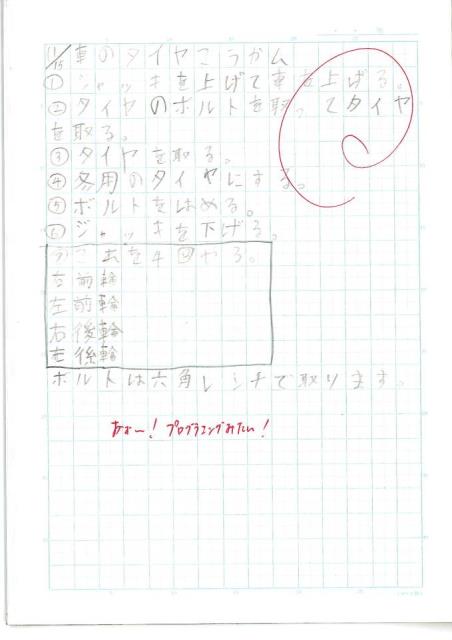 1/15 車のタイヤこうかん
① ジャッキを上げて車を上げる。
② タイヤのボルトを取ってタイヤ
を取る。
③ タイヤを取る。
④ 冬用のタイヤにする。
⑤ ボルトをはめる。
⑥ ジャッキを下げる。
を4回やる。
右前輪
左前輪
右後輪
左後輪
ボルトは六角レンチで取ります。
おぉ〜!プログラミングみたい!